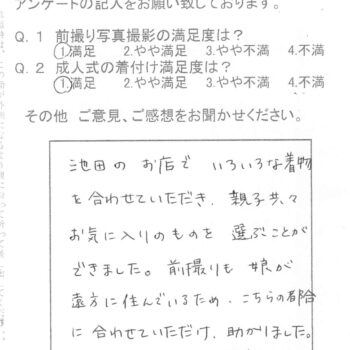 アンケートの記入をお願い致しております。
Q.1 前撮り写真撮影の満足度は?
①.満足 2.やや満足 3.やや不満 4.不満
Q.2 成人式の着付け満足度は?
①.満足 2.やや満足 3.やや不満 4.不満
その他 ご意見、ご感想をお聞かせください。
池田の お店で いろいろな着物
を合わせていただき、親子共々
お気に入りのものを 選ぶことが
できました。前撮りも 娘が
遠方に住んでいるため、こちらの都合
に合わせていただけ、助かりました。